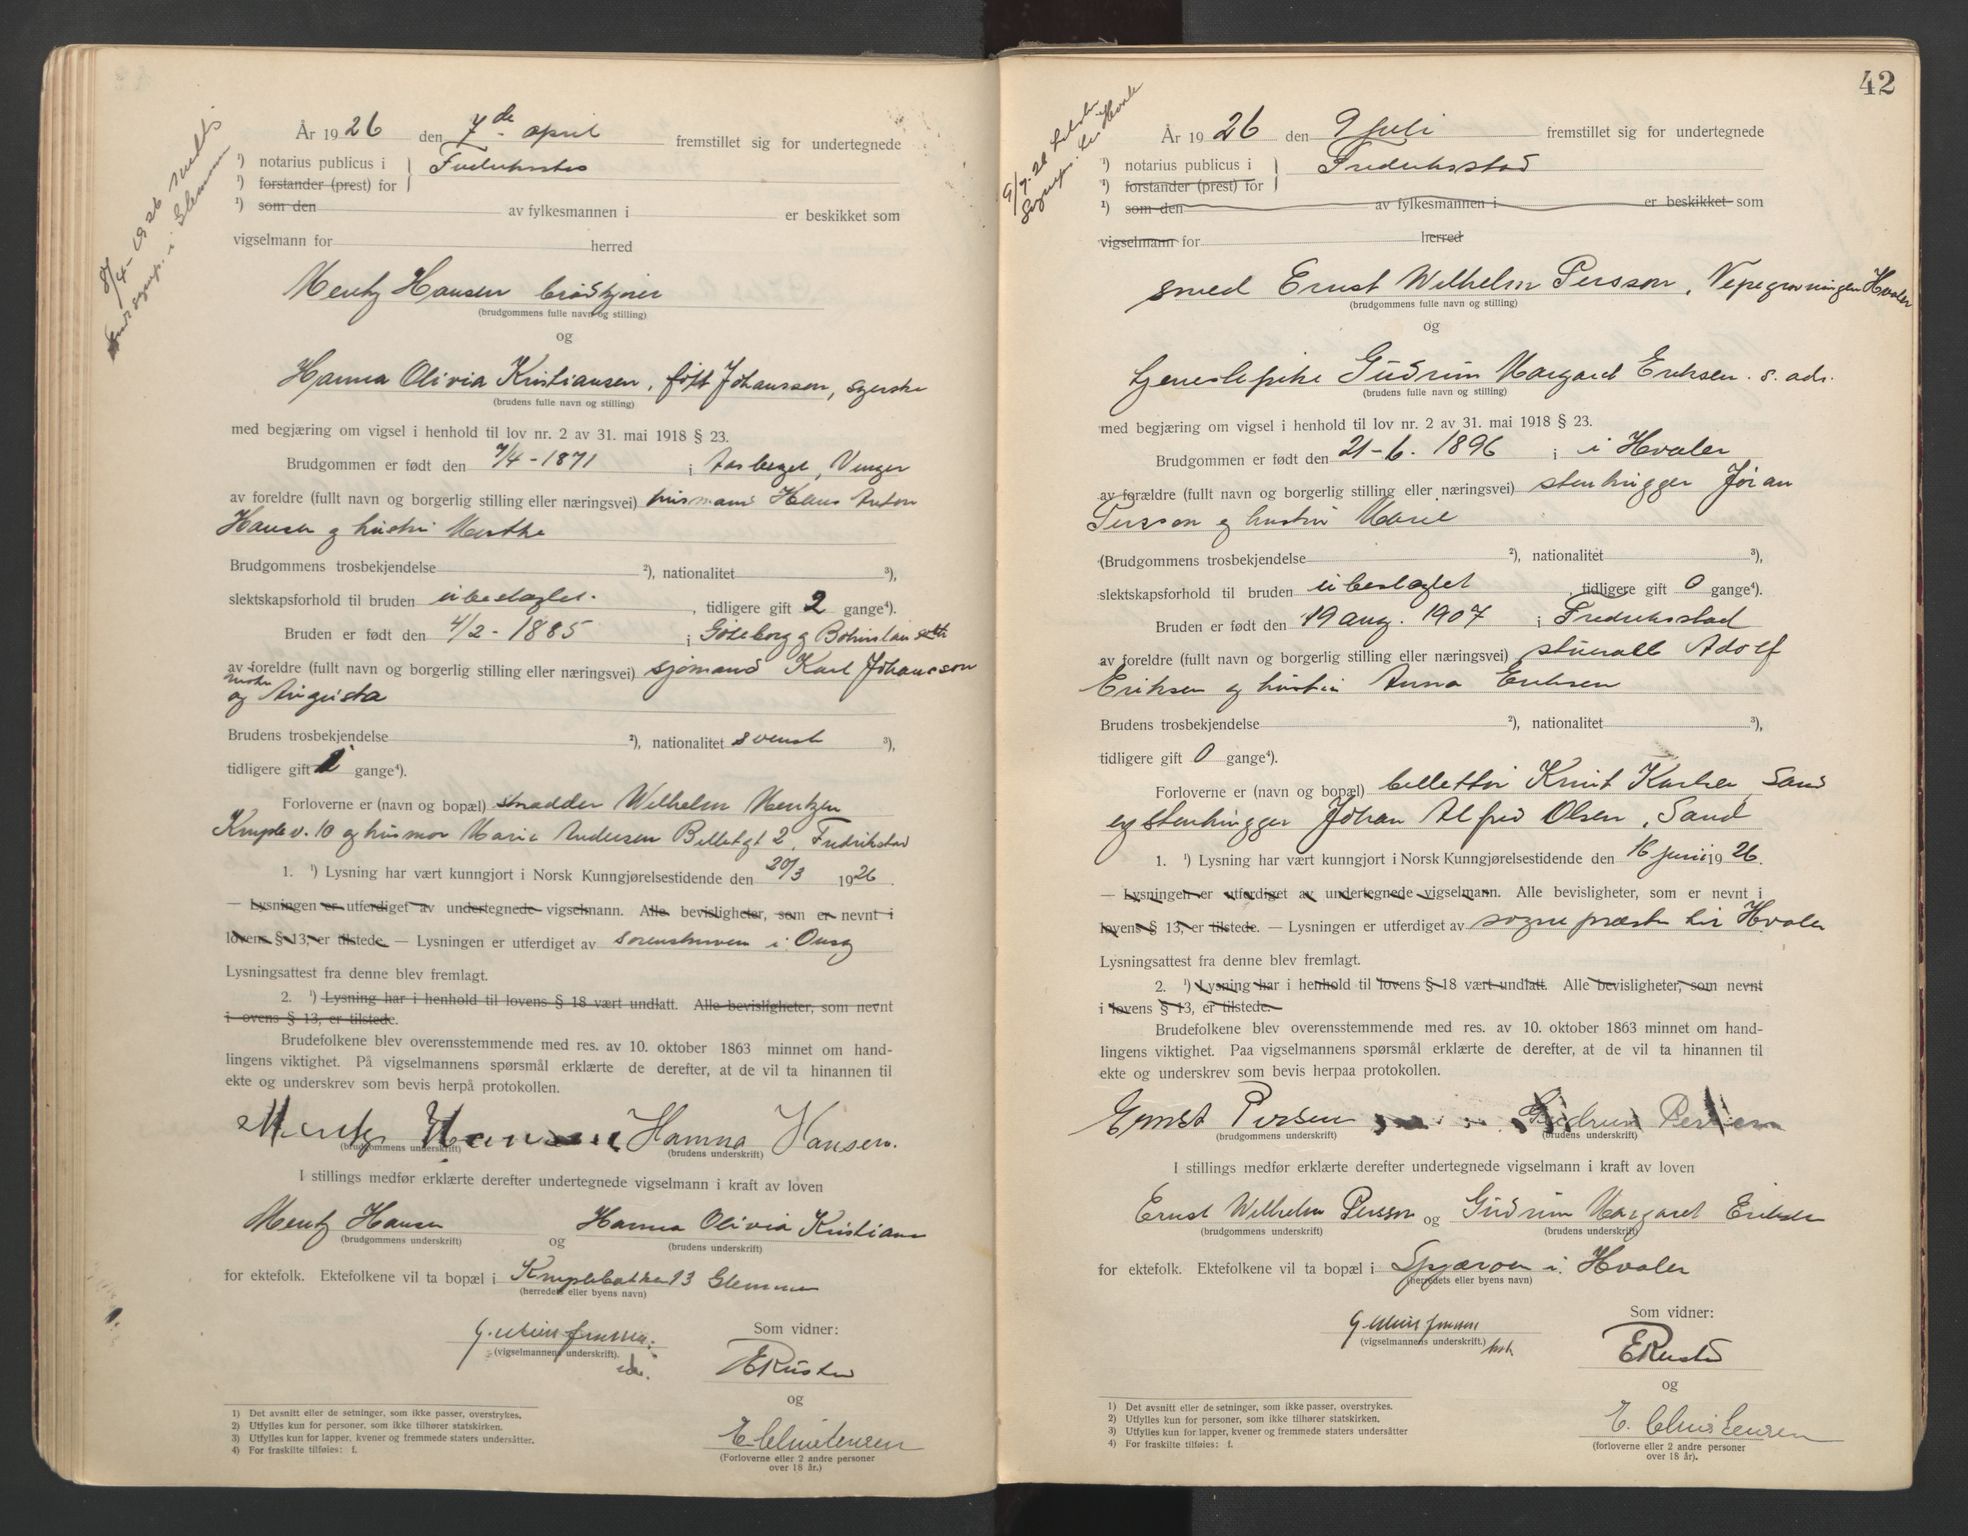 År 1926 den 7de april fremstillet sig for undertegnede
¹) notarius publicus i Fredriksstad
¹) forstander (prest) for
¹) som den av fylkesmannen i er beskikket som
vigselmann for herred
8/4-1926 i Glemmen
Mentz Hansen brødkjører
(brudgommens fulle navn og stilling)
og
Hanna Olivia Kristiansen, født Johansson, syerske
(brudens fulle navn og stilling)
med begjæring om vigsel i henhold til lov nr. 2 av 31. mai 1918 § 23.
Brudgommen er født den 7/4-1871 i Aasberget, Vinger
av foreldre (fullt navn og borgerlig stilling eller næringsvei) husmand Hans Anton
Hansen og hustru Marthe
Brudgommens trosbekjendelse ²), nationalitet ³),
slektskapsforhold til bruden ubeslægtet. , tidligere gift 2 gange⁴).
Bruden er født den 4/2-1885 i Gøteborg og Bohuslän
av foreldre (fullt navn og borgerlig stilling eller næringsvei) sjømand Karl Johansson
og hustru Augusta
Brudens trosbekjendelse ²), nationalitet svensk ³),
tidligere gift 1 gange⁴).
Forloverne er (navn og bopæl) skrædder Wilhelm Mentzen
Knuple v. 10 og husmor Marie Andersen Billetgt 2, Fredrikstad
1. ¹) Lysning har vært kunngjort i Norsk Kunngjørelsestidende den 20/3 1926.
— Lysningen er utferdiget av undertegnede vigselmann. Alle bevisligheter, som er nevnt i
lovens § 13, er tilstede. — Lysningen er utferdiget av sorenskriveren i Onsøy
Lysningsattest fra denne blev fremlagt.
2. ¹) Lysning har i henhold til lovens § 18 vært undlatt. Alle bevisligheter, som nevnt
i lovens § 13, er tilstede.
Brudefolkene blev overensstemmende med res. av 10. oktober 1863 minnet om hand-
lingens viktighet. På vigselmannens spørsmål erklærte de derefter, at de vil ta hinannen til
ekte og underskrev som bevis herpå protokollen.
Mentz Hansen Hanna Hansen.
(brudgommens underskrift) (brudens underskrift)
I stillings medfør erklærte derefter undertegnede vigselmann i kraft av loven
Mentz Hansen og Hanna Olivia Kristiansen
(brudgommens underskrift) (brudens underskrift)
for ektefolk. Ektefolkene vil ta bopæl i Knuplebakken 13 Glemmen
(herredets eller byens navn)
Som vidner:
(vigselmannens underskrift).
E Rustad
og
E. Christensen
(Forloverne eller 2 andre personer
over 18 år.)
1) Det avsnitt eller de setninger, som ikke passer, overstrykes.
2) Utfylles kun for personer, som ikke tilhører statskirken.
3) Utfylles kun for lapper, kvener og fremmede staters undersåtter.
4) For fraskilte tilføies: f.
42
År 1926 den 9 juli fremstillet sig for undertegnede
¹) notarius publicus i Fredriksstad
¹) forstander (prest) for
¹) som den av fylkesmannen i er beskikket som
vigselmann for herred
smed Ernst Wilhelm Persson, Hvaler
(brudgommens fulle navn og stilling)
og
tjenestepike Gudrun Margaret Eriksen. s. ads.
(brudens fulle navn og stilling)
med begjæring om vigsel i henhold til lov nr. 2 av 31. mai 1918 § 23.
Brudgommen er født den 21-6. 1896 i i Hvaler
av forældre (fullt navn og borgerlig stilling eller næringsvei) stenhugger Johan
Persson og hustru Marie
(Brudgommens trosbekjendelse ²), nationalitet ³),
slektskapsforhold til bruden ubeslægtet , tidligere gift 0 gange⁴).
Bruden er født den 19 aug. 1907 i Fredriksstad
av foreldre (fullt navn og borgerlig stilling eller næringsvei) stuert Adolf
Eriksen og hustru Anna Eriksen
Brudens trosbekjendelse ²), nationalitet ³),
tidligere gift 0 gange⁴).
Forloverne er (navn og bopæl) billettør Knut Karlsen, Sand
og stenhugger Johan Alfred Olsen, Sand
1. ¹) Lysning har vært kunngjort i Norsk Kunngjørelsestidende den 16 juni 1926.
— Lysningen er utferdiget av undertegnede vigselmann. Alle bevisligheter, som er nevnt i
lovens § 13, er tilstede. — Lysningen er utferdiget av sognepræsten til Hvaler
Lysningsattest fra denne blev fremlagt.
2. ¹) Lysning har i henhold til lovens § 18 vært undlatt. Alle bevisligheter, som nevnt
i lovens § 13, er tilstede.
Brudefolkene blev overensstemmende med res. av 10. oktober 1863 minnet om hand-
lingens viktighet. Paa vigselmannens spørsmål erklærte de derefter, at de vil ta hinannen til
ekte og underskrev som bevis herpaa protokollen.
Ernst Persen Gudrun Persen
(brudgommens underskrift) (brudens underskrift)
I stillings medfør erklærte derefter undertegnede vigselmann i kraft av loven
Ernst Wilhelm Persson og Gudrun Margaret Eriksen
(brudgommens underskrift) (brudens underskrift)
for ektefolk. Ektefolkene vil ta bopæl i Spjærøen i Hvaler
(herredets eller byens navn)
Som vidner:
(vigselmannens underskrift.)
E Rustad
og
E. Christensen
(forloverne eller 2 andre personer
over 18 år).
1) Det avsnitt eller de setninger, som ikke passer, overstrykes.
2) Utfylles kun for personer, som ikke tilhører statskirken.
3) Utfylles kun for lapper, kvener og fremmede staters undersåtter
4) For fraskilte tilføies: f.